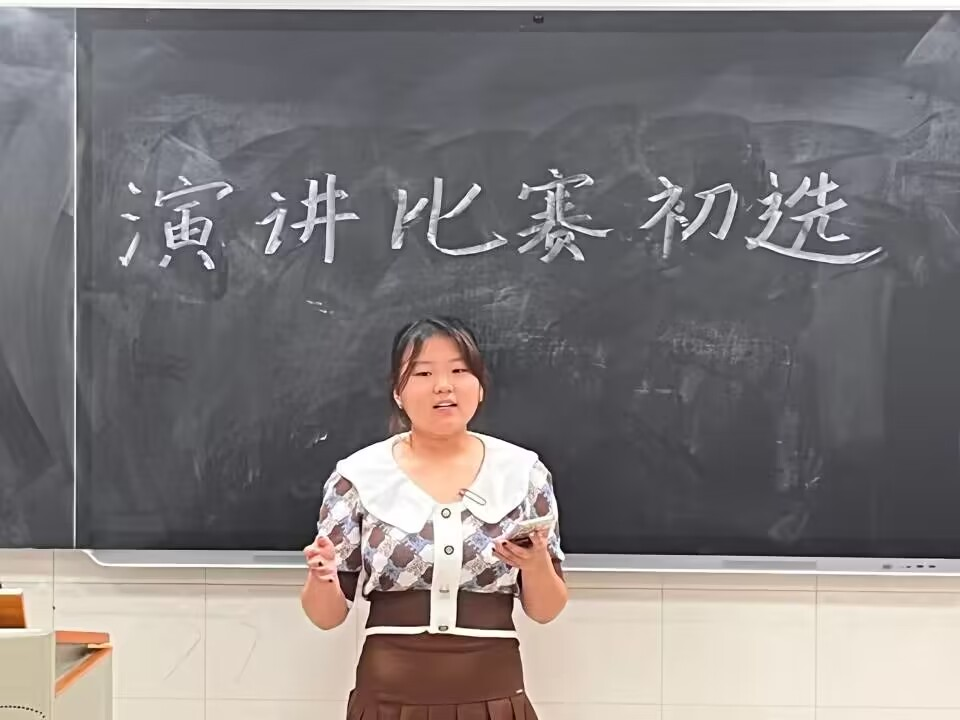 演讲比赛初选